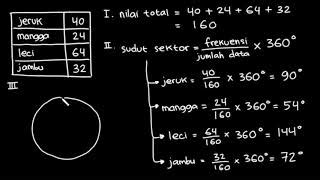 jeruk 40
mangga 24
leci 64
jambu 32
I. nilai total = 40 + 24 + 64 + 32
= 160
II. sudut sektor = frekuensi / jumlah data × 360°
→ jeruk = 40/160 × 360° = 90°
→ mangga = 24/160 × 360° = 54°
→ leci = 64/160 × 360° = 144°
→ jambu = 32/160 × 360° = 72°
III